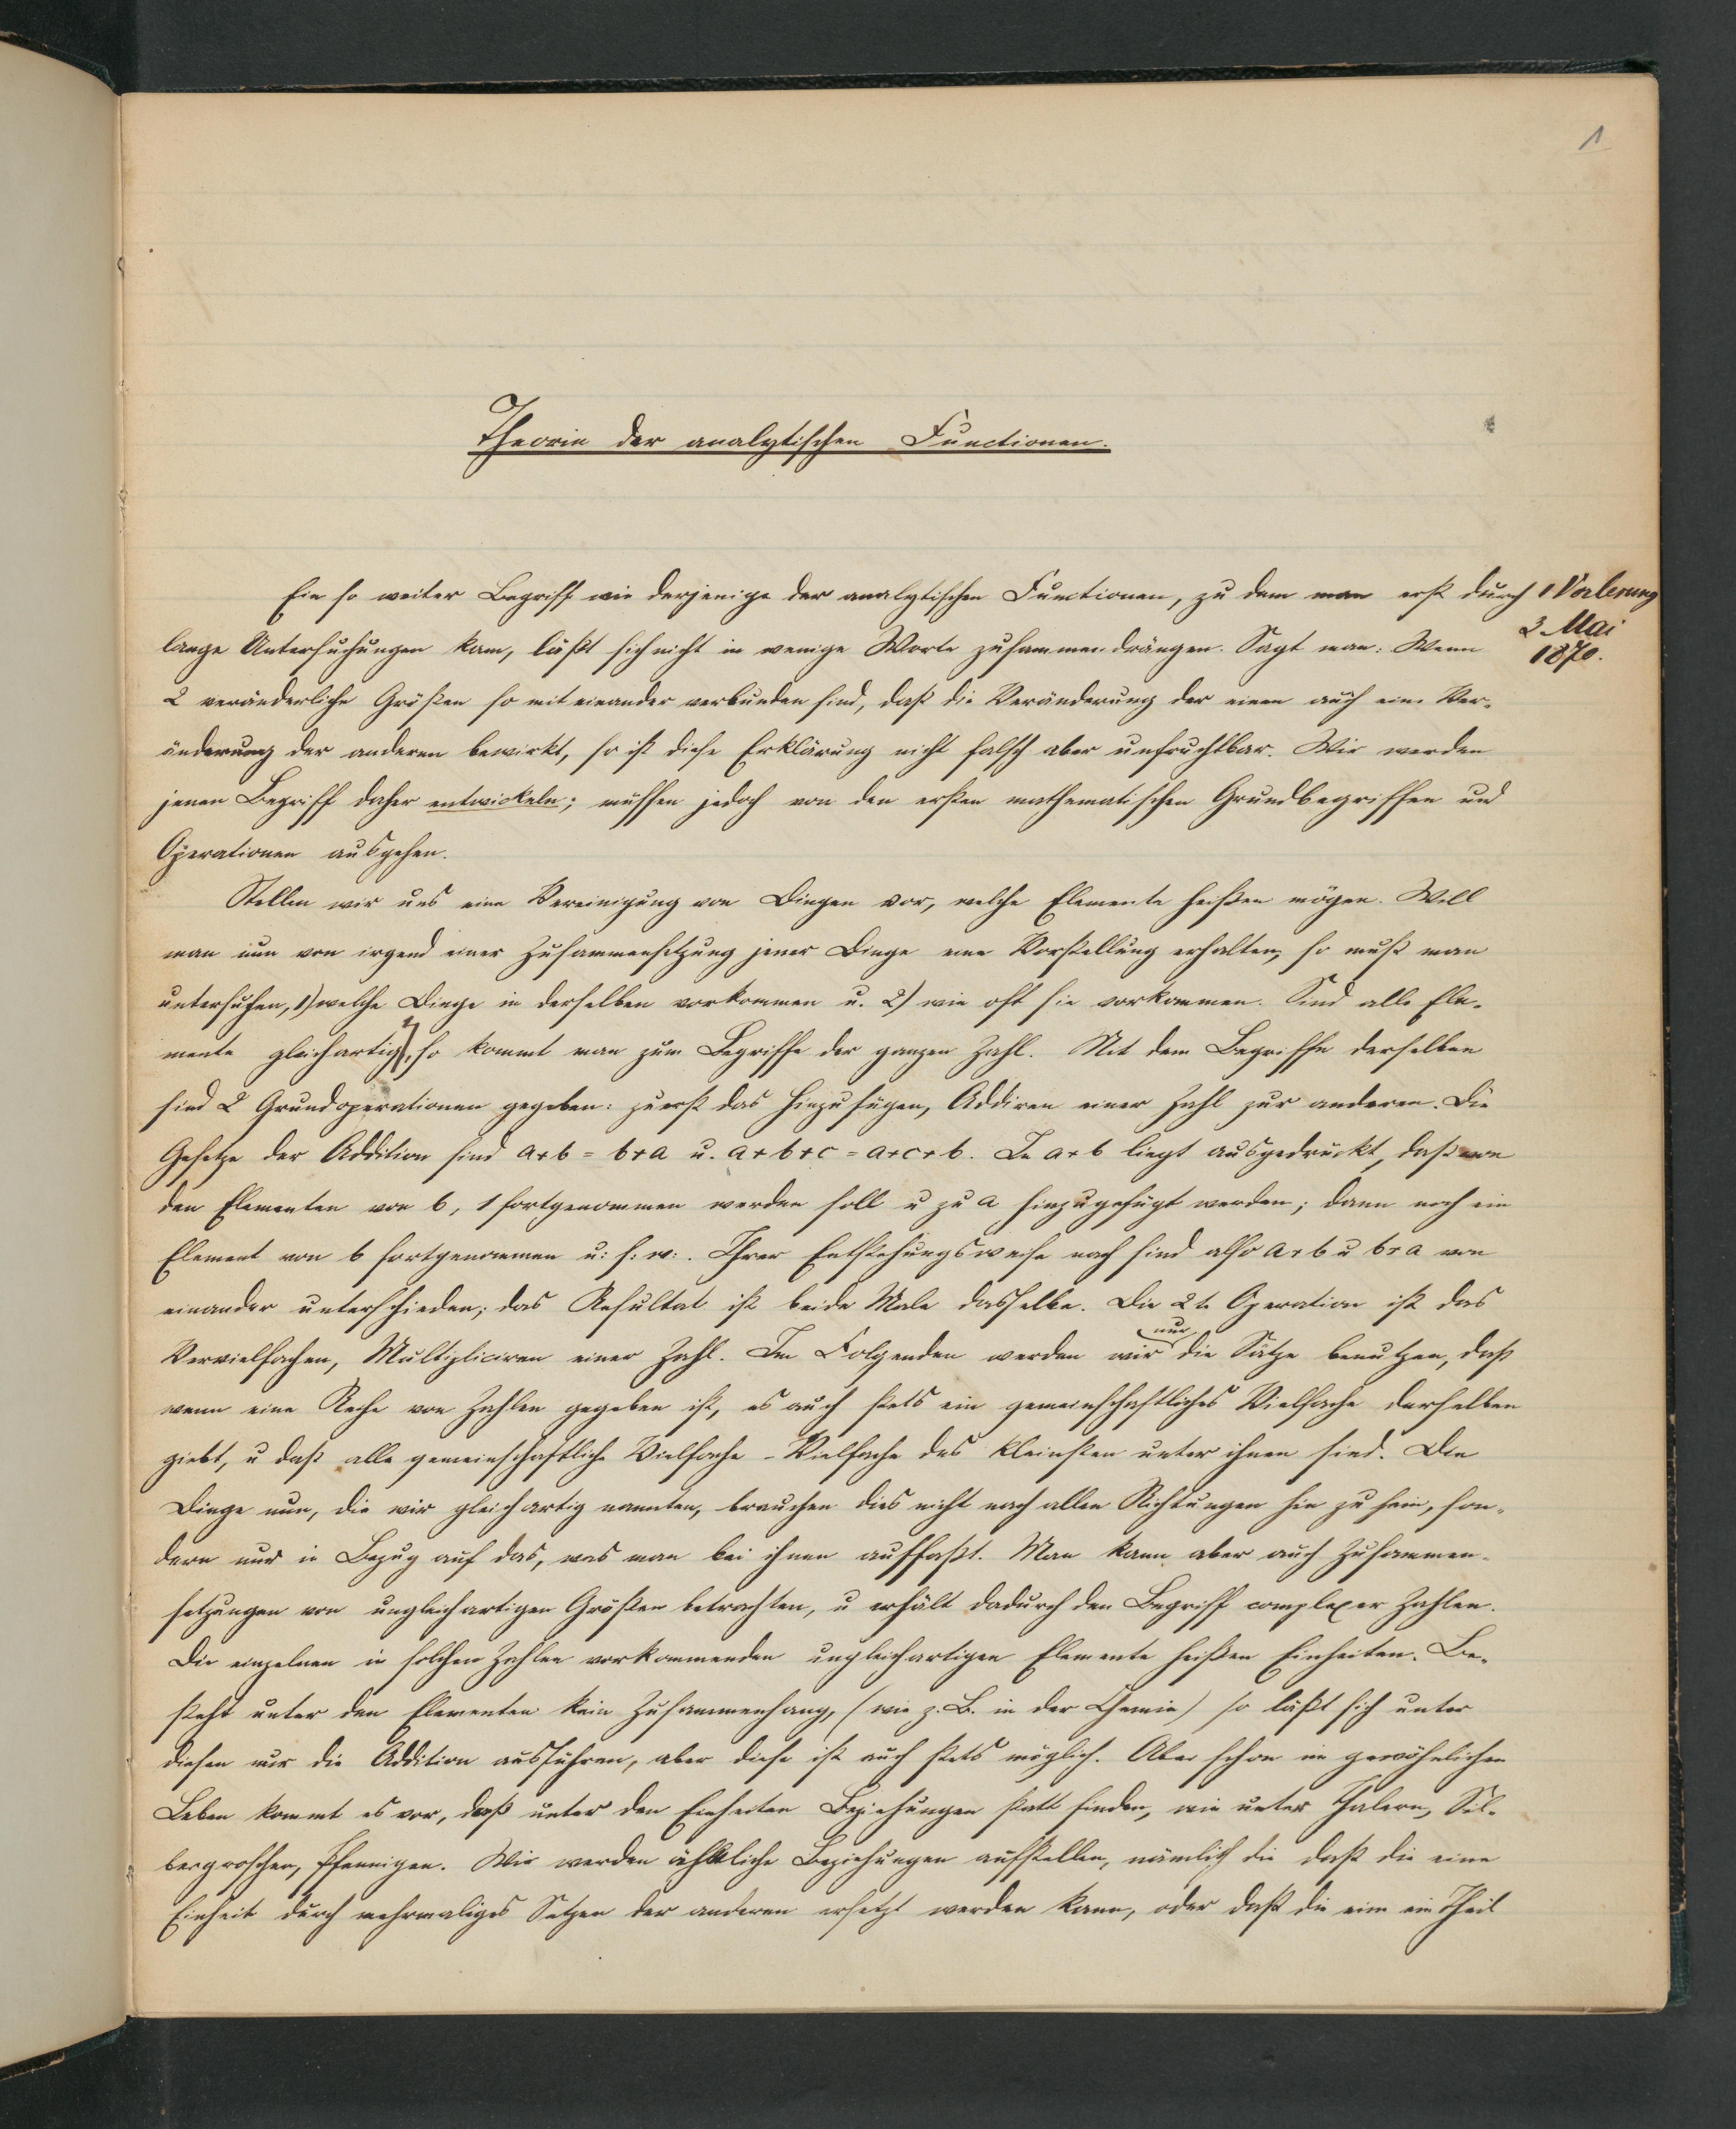 1
Theorie der analytischen Functionen.
Ein so weiter Begriff wie derjenige der analytischen Functionen, zu dem man erst durch
1 Vorlesung
3 Mai
1870.
lange Untersuchungen kam, läßt sich nicht in wenige Worte zusammendrängen. Sagt man: Wenn
2 veränderliche Größen so mit einander verbunden sind, daß die Veränderung der einen auch eine Ver-
änderung der anderen bewirkt, so ist diese Erklärung nicht falsch aber unfruchtbar. Wir werden
jenen Begriff daher entwickeln; müssen jedoch von den ersten mathematischen Grundbegriffen und
Operationen ausgehen.
Stellen wir uns eine Vereinigung von Dingen vor, welche Elemente heißen mögen. Will
man nun von irgend einer Zusammensetzung jener Dinge eine Vorstellung erhalten, so muß man
untersuchen, 1) welche Dinge in derselben vorkommen u. 2) wie oft sie vorkommen. Sind alle Ele-
mente gleichartig, so kommt man zum Begriffe der ganzen Zahl. Mit dem Begriffe derselben
sind 2 Grundoperationen gegeben: zuerst das Hinzufügen, Addiren einer Zahl zur anderen. Die
Gesetze der Addition sind a+b = b+a u. a+b+c = a+c+b. In a+b liegt ausgedrückt, daß von
den Elementen von b, 1 fortgenommen werden soll u zu a hinzugefügt werden; dann noch ein
Element von b fortgenommen u: s: w:. Ihrer Entstehungsweise nach sind also a+b u b+a von
einander unterschieden; das Resultat ist beide Male dasselbe. Die 2te Operation ist das
Vervielfachen, Multipliciren einer Zahl. Im Folgenden werden wir nur die Sätze benutzen, daß
wenn eine Reihe von Zahlen gegeben ist, es auch stets ein gemeinschaftliches Vielfache derselben
giebt, u daß alle gemeinschaftliche Vielfache - Vielfache des kleinsten unter ihnen sind. Die
Dinge nun, die wir gleichartig nannten, brauchen dies nicht nach allen Richtungen hin zu sein, son-
dern nur in Bezug auf das, was man bei ihnen auffaßt. Man kann aber auch Zusammen-
setzungen von ungleichartigen Größen betrachten, u erhält dadurch den Begriff complexer Zahlen.
Die einzelnen in solchen Zahlen vorkommenden ungleichartigen Elemente heißen Einheiten. Be-
steht unter den Elementen kein Zusammenhang, (wie z. B. in der Chemie) so läßt sich unter
diesen nur die Addition ausführen, aber diese ist auch stets möglich. Aber schon im gewöhnlichen
Leben kommt es vor, daß unter den Einheiten Beziehungen statt finden, wie unter Thalern, Sil-
bergroschen, Pfennigen. Wir werden ähnliche Beziehungen aufstellen, nämlich die daß die eine
Einheit durch mehrmaliges Setzen der anderen ersetzt werden kann, oder daß die eine ein Theil